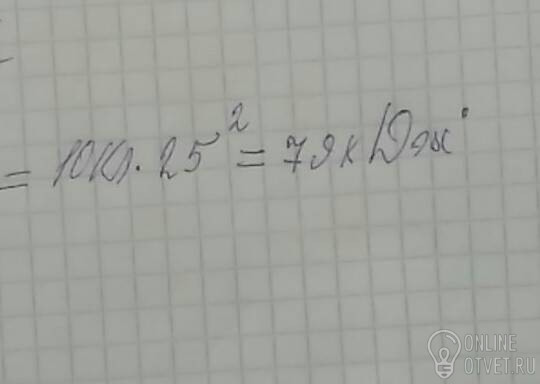 = 10Кл · 25² = 79кДж
ONLINE
OTVET.RU